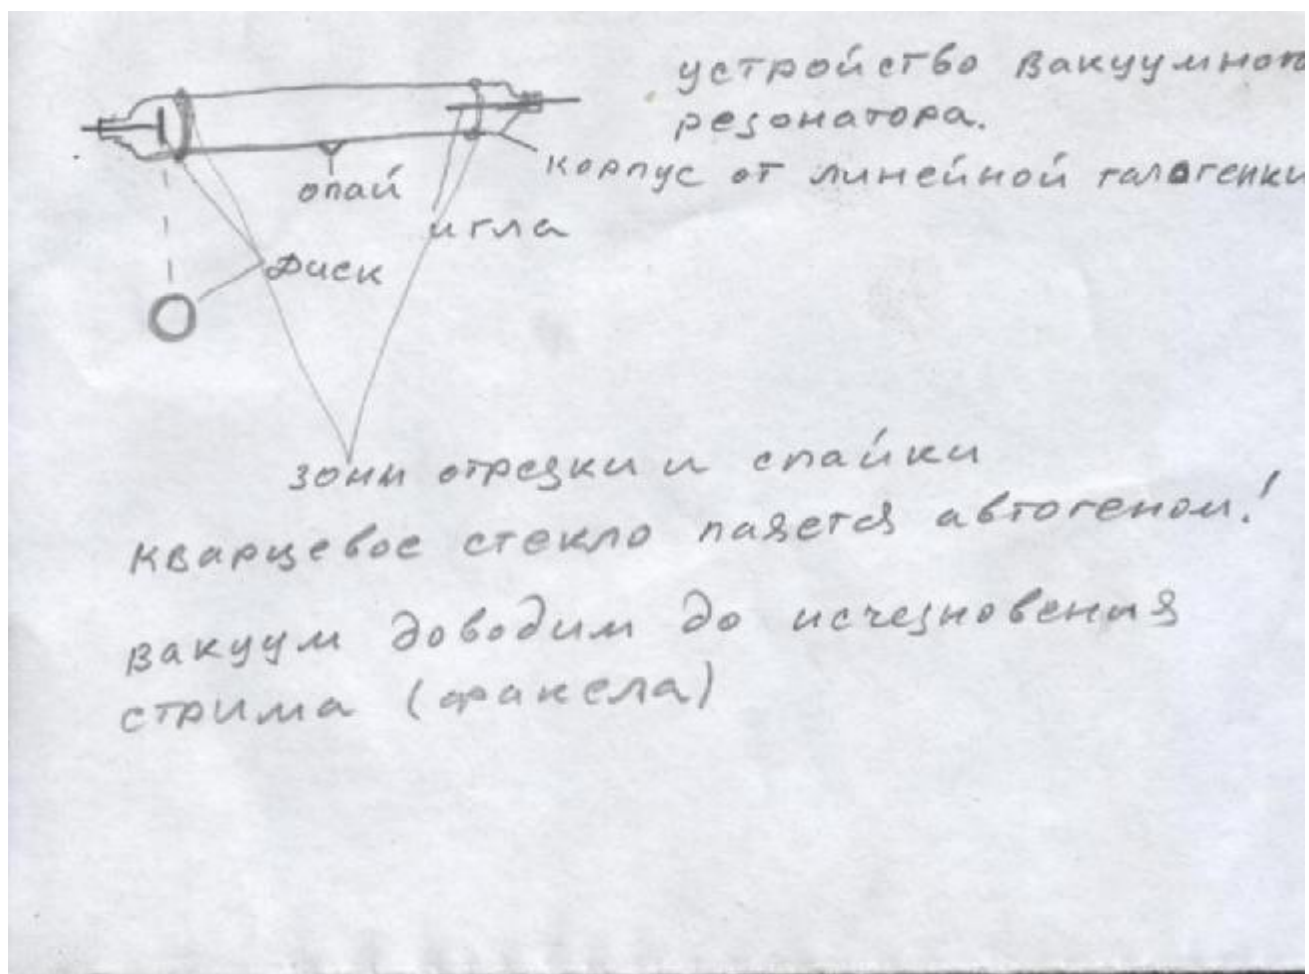 устройство вакуумного
резонатора.
корпус от линейной галогенки
опай
игла
диск
зоны отрезки и спайки
кварцевое стекло паяется автогеном!
вакуум доводим до исчезновения
стрима (факела)